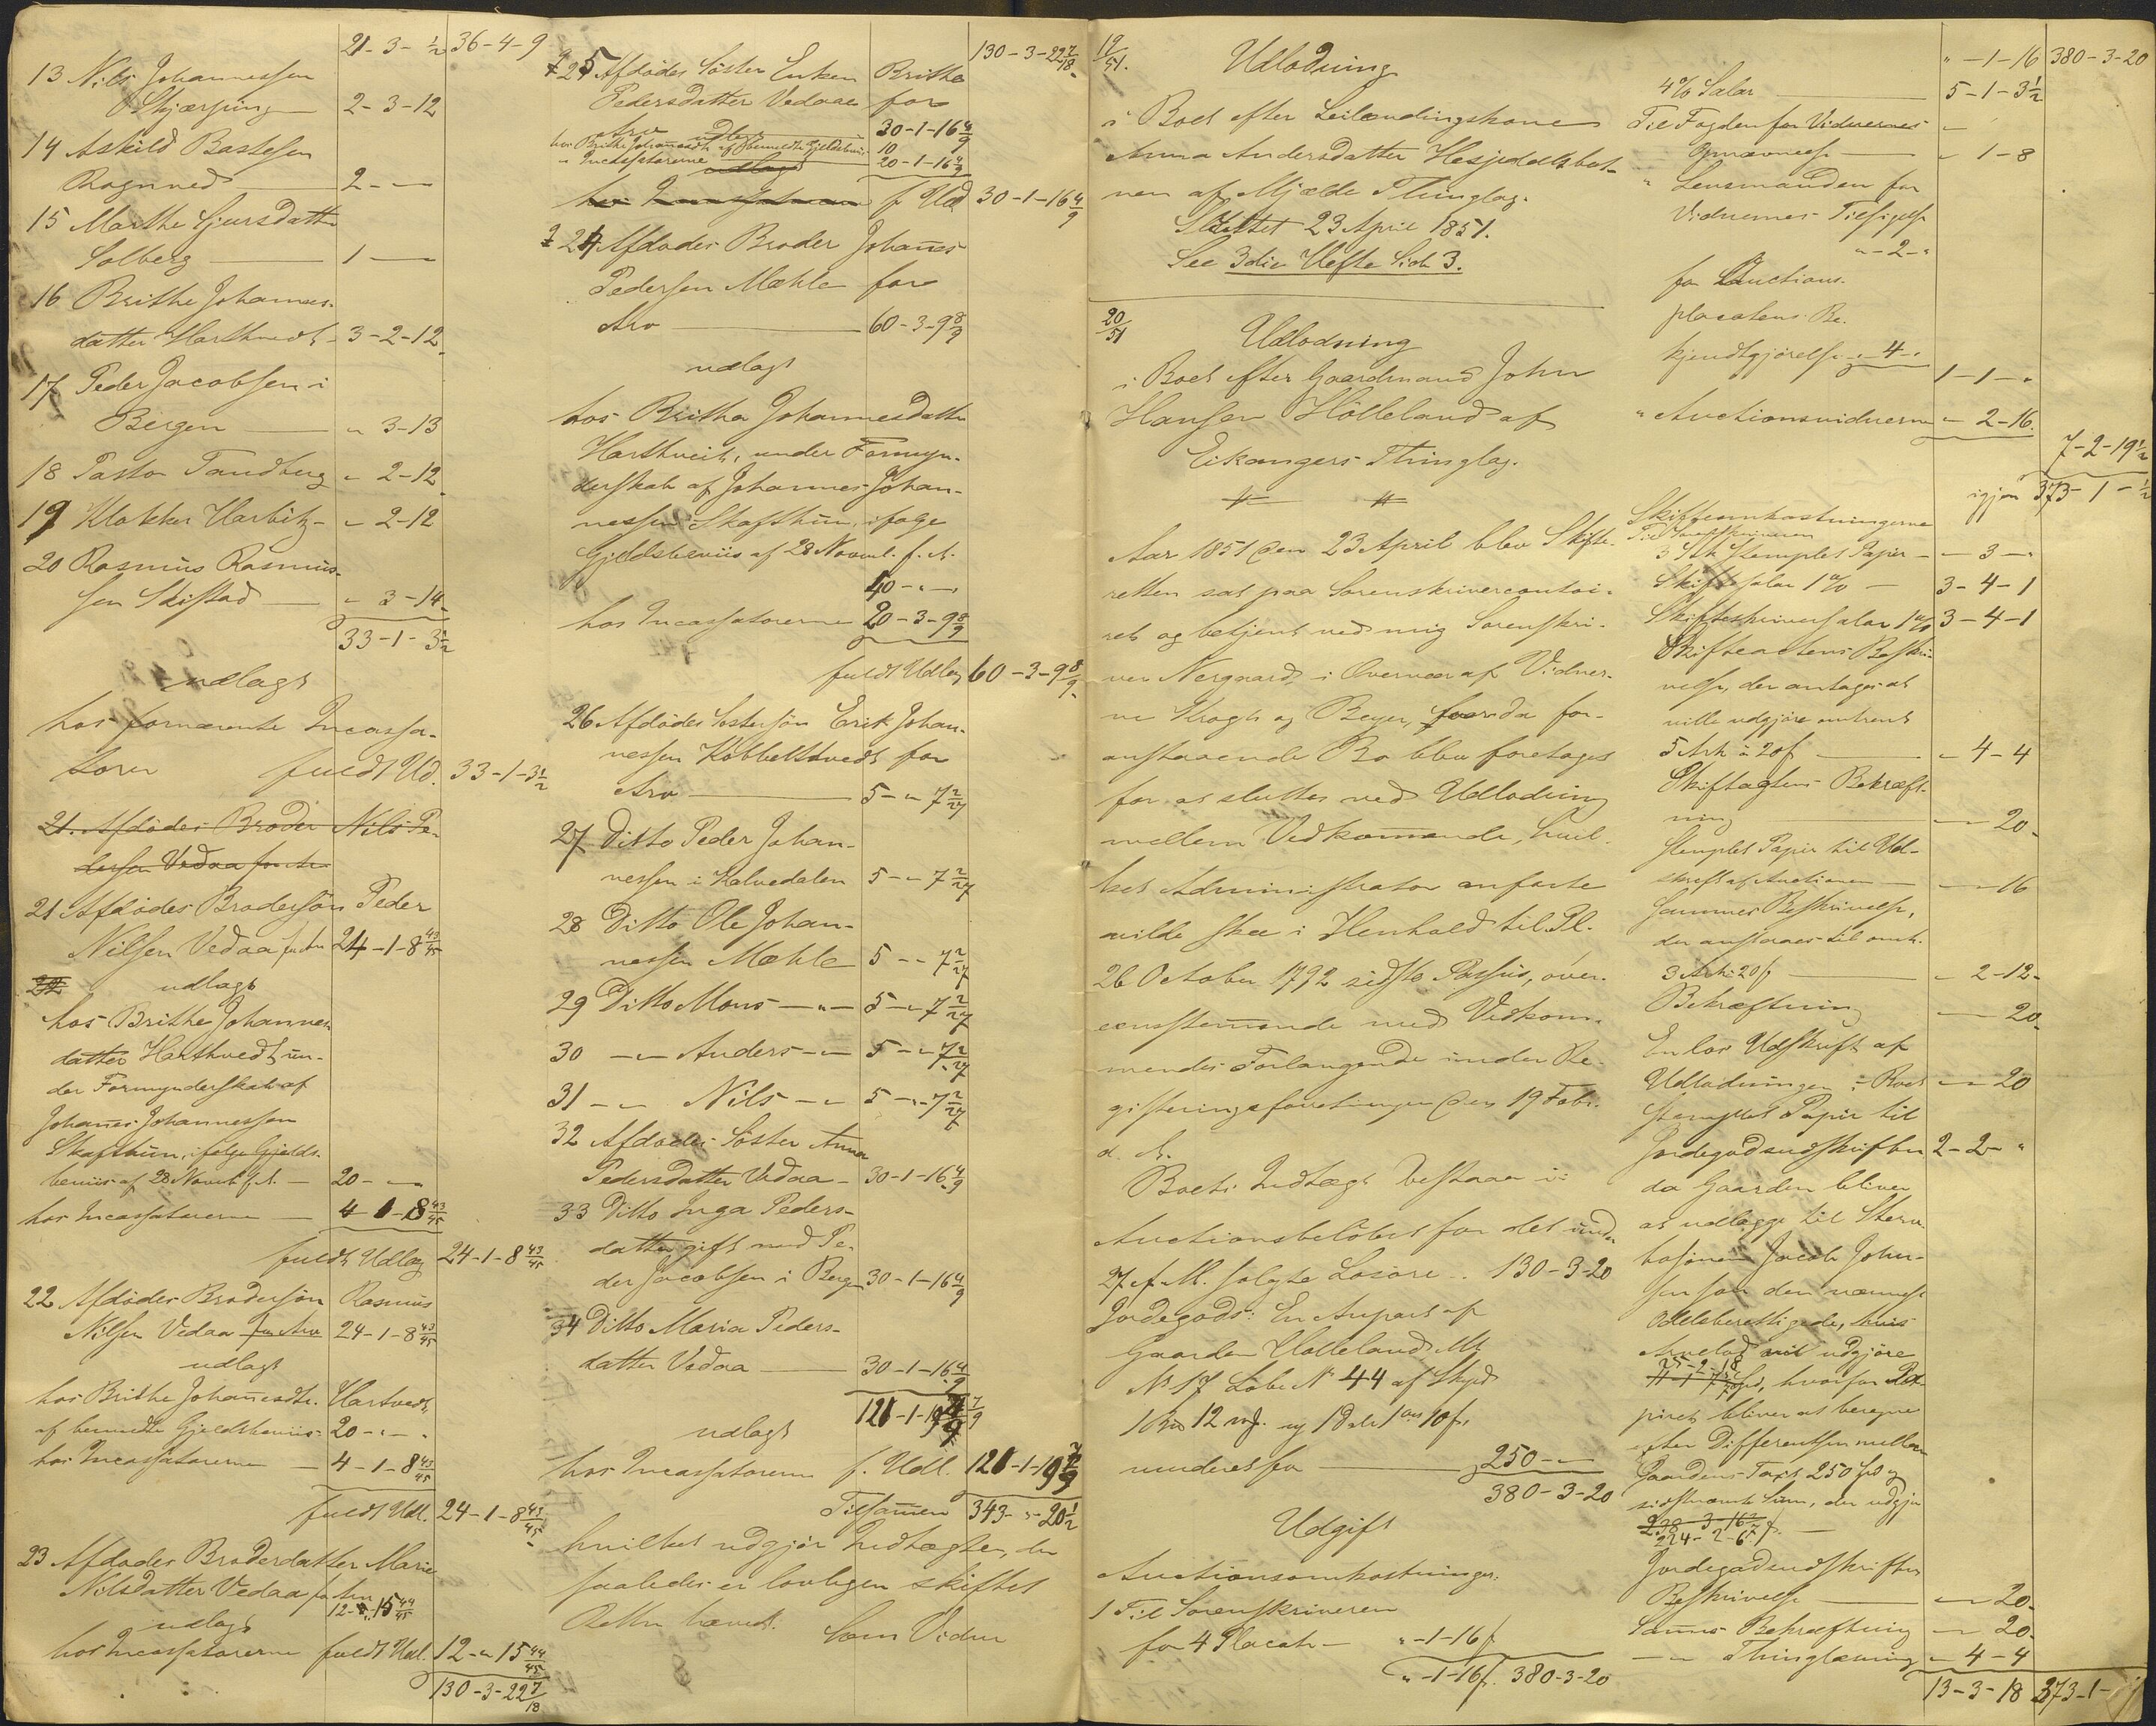 21-3-½ 36-4-9
13 Nils Johannessen
Skjærping 2-3-12
14 Askild Bastesen
Rognved 2 - -
15 Marthe Sjursdatter
Solberg 1 -
16 Brithe Johannes-
datter Harthvedt 3-2-12
17 Peder Jacobsen i
Bergen " 3-13
18 Pastor Tandberg " 2-12
19 Klokker Harbitz " 2-12
20 Rasmus Rasmus-
sen Skistad " 3-14
33-1-3½
udlagt
hos fornævnte Incassa-
torer fuldt Ud. 33-1-3½
21. Afdødes Broder Nils Pe-
dersen Vedaa for Arv
21 Afdødes Brodersøn Peder
Nilsen Vedaa for Arv 24-1-8 43/45
22 udlagt
hos Brithe Johannes
datter Harthvedt un-
der Formynderskab af
Johannes Johannessen
Skafthun, ifølge Gjelds-
beviis af 28 Novemb. f. A. 20 - -
hos Incassatorerne 4-1-8 43/45
fuldt Udlæg 24-1-8 43/45
22 Afdødes Brodersøn Rasmus
Nilsen Vedaa for Arv 24-1-8 43/45
udlagt
hos Brithe Johannesdtr. Hartvedt
af bemeldte Gjeldsbeviis 20 - -
hos Incassatorerne 4-1-8 43/45
fuldt Udl. 24-1-8 43/45
23 Afdødes Broderdatter Marie
Nilsdatter Vedaa for Arv
12-"-15 44/45
udlagt
hos Incassatorerne fuldt Udl. 12-"-15 44/45
130-3-22 7/18
130-3-22 7/18
25 Afdødes Søster Enken Brithe
Pedersdatter Vedaae for
Arv 30-1-16 4/9
udlagt
hos Brithe Johannesdtr. af bemeldte Gjeldsbeviis 10
" Incassatorerne 20-1-16 4/9
udlagt
hos Incassatorerne f. Ud 30-1-16 4/9
24 Afdødes Broder Johannes
Pedersen Mæhle for
Arv 60-3-9 8/9
udlagt
hos Britha Johannesdatter
Harthveit, under Formyn-
derskab af Johannes Johan-
nessen Skafthun, ifølge
Gjeldsbeviis af 28 Novemb. f. A.
40 - -
hos Incassatorerne 20-3-9 8/9
fuldt Udlæg 60-3-9 8/9
26 Afdødes Søstersøn Erik Johan-
nessen Købbeltvedt for
Arv 5-"-7 2/27
27 Ditto Peder Johan-
nessen i Kalvedalen 5-"-7 2/27
28 Ditto Ole Johan-
nessen Mæhle 5-"-7 2/27
29 Ditto Mons -"- 5-"-7 2/27
30 -"- Anders -"- 5-"-7 2/27
31 -"- Nils -"- 5-"-7 2/27
32 Afdødes Søster Anna
Pedersdatter Vedaa 30-1-16 4/9
33 Ditto Inga Peders-
datter gift med Pe-
der Jacobsen i Bergen 30-1-16 4/9
34 Ditto Maria Peders-
datter Vedaa 30-1-16 4/9
121-1-19 7/9
udlagt
hos Incassatorerne f. Udl. 121-1-19 7/9
Tilsammen 343-"-20½
hvilket udgjør Indtægten, der
saaledes er lovligen skiftet
Retten hævet. Som Vidne
19/51. Udlodning
i Boet efter Leilændingskone
Anna Andersdatter Hesjedalsbot-
nen af Mjelde Thinglag.
Sluttet 23 April 1851.
See 3die Hefte Side 3.
20/51 Udlodning
i Boet efter Gaardmand John
Hansen Hölleland af
Eikangers Thinglag.
Aar 1851 den 23 April blev Skifte-
retten sat paa Sorenskrivercontoi-
ret og betjent ved mig Sorenskri-
ver Nergaard, i Overvær af Vidner-
ne Krogh og Beyer, hvorda for-
anstaaende Bo blev foretaget
for at sluttes ved Udlodning
mellem Vedkommende, hvil-
ket Administrator anførte
vilde skee i Henhold til Pl.
26 October 1792 sidste Passus, over-
eensstemmende med Vedkom-
mendes Forlangende under Re-
gistreringsforretningen den 19 Febr.
d. A.
Boets Indtægt bestaar i:
Auctionsbeløbet for det under
27 f. M. solgte Løsøre 130-3-20
Jordegods: En Anpart af
Gaarden Holleland Mt
No 17 Løbe No 44 af Skyld
12 mk. og 1 Dlr 1 ort 10 s.
vurderet for 250 - -
380-3-20
Udgift
Auctionsomkostninger:
1 Til Sorenskriveren
for 4 Placater "-1-16 s.
"-1-16 s. 380-3-20
"-1-16 380-3-20
4% Salær 5-1-3½
Til Fogden for Vidnernes
Opnævnelse " 1-8
" Lensmanden for
Vidnernes Tilsigelse
"-2-"
for Auctions-
placatens Be-
kjendtgjørelse "-4-"
1-1-"
" Auctionsvidnerne " 2-16
7-2-19½
igjen 373-1-½
Skifteomkostningerne
Til Sorenskriveren
3 Ark stemplet Papir "-3-"
Skiftesalær 1% 3-4-1
Skifteskriversalær 1% 3-4-1
Skifteactens Beskri-
velse, der antages at
ville udgjøre omtrent
5 Ark à 20 s " 4-4
Skifteactens Bekræft-
ning " " 20
stemplet Papir til Ud-
skrift af Auctionen " " 16
Sammes Beskrivelse,
der anslaaes til omtr.
3 Ark 20 s " 2-12
Bekræftning " " 20
En los Udskrift af
Udlodningen i Boet " " 20
Stemplet Papir til
Jordegodsudskriften 2-2-"
da Gaarden bliver
at udlægge til Sterv-
bosønnen Jacob John-
sen som den nærmest
Odelsberettigede, hvis
Arvelod vil udgjøre
25-2-18
hvorfor Pa-
piret bliver at beregne
efter Differentsen mellem
Gaardens Taxt 250 Spd og
sidstnævnte Sum, der udgjør
230-3-16
224-2-6 s.
Jordegodsudskriftens
Beskrivelse " " 20
Sammes Bekræftning " " 20
-"- Thinglæsning " 4-4
13-3-18 373-1-